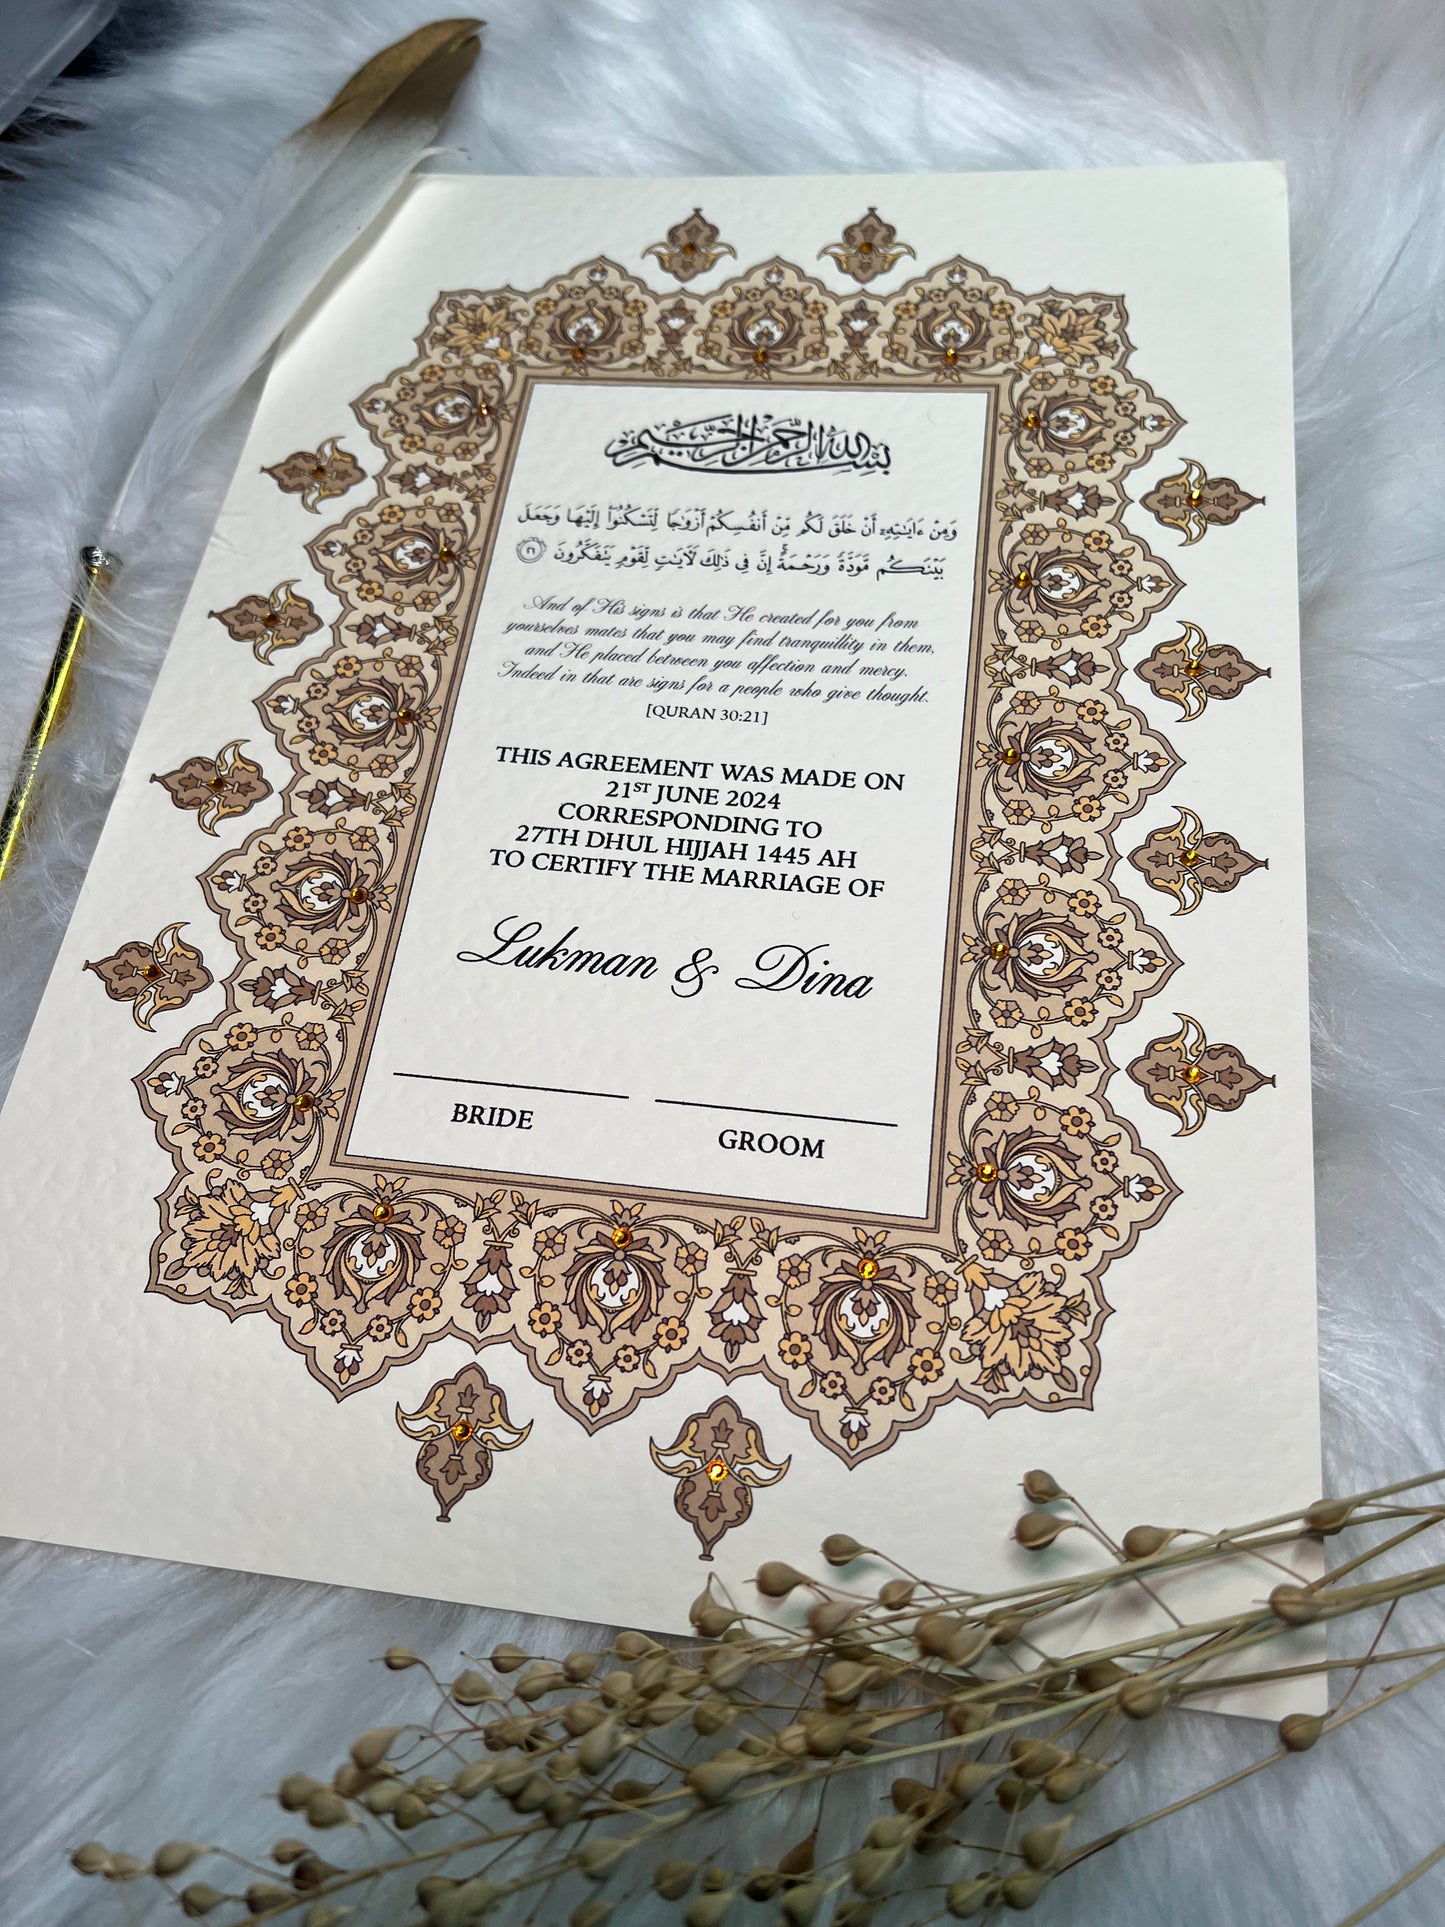 بسم الله الرحمن الرحيم
وَمِنْ ءَايَـٰتِهِۦٓ أَنْ خَلَقَ لَكُم مِّنْ أَنفُسِكُمْ أَزْوَٰجًا لِّتَسْكُنُوٓا۟ إِلَيْهَا وَجَعَلَ
بَيْنَكُم مَّوَدَّةً وَرَحْمَةً ۚ إِنَّ فِى ذَٰلِكَ لَـَٔايَـٰتٍ لِّقَوْمٍ يَتَفَكَّرُونَ ٢١
And of His signs is that He created for you from
yourselves mates that you may find tranquillity in them,
and He placed between you affection and mercy.
Indeed in that are signs for a people who give thought.
[QURAN 30:21]
THIS AGREEMENT WAS MADE ON
21ST JUNE 2024
CORRESPONDING TO
27TH DHUL HIJJAH 1445 AH
TO CERTIFY THE MARRIAGE OF
Lukman & Dina
BRIDE GROOM